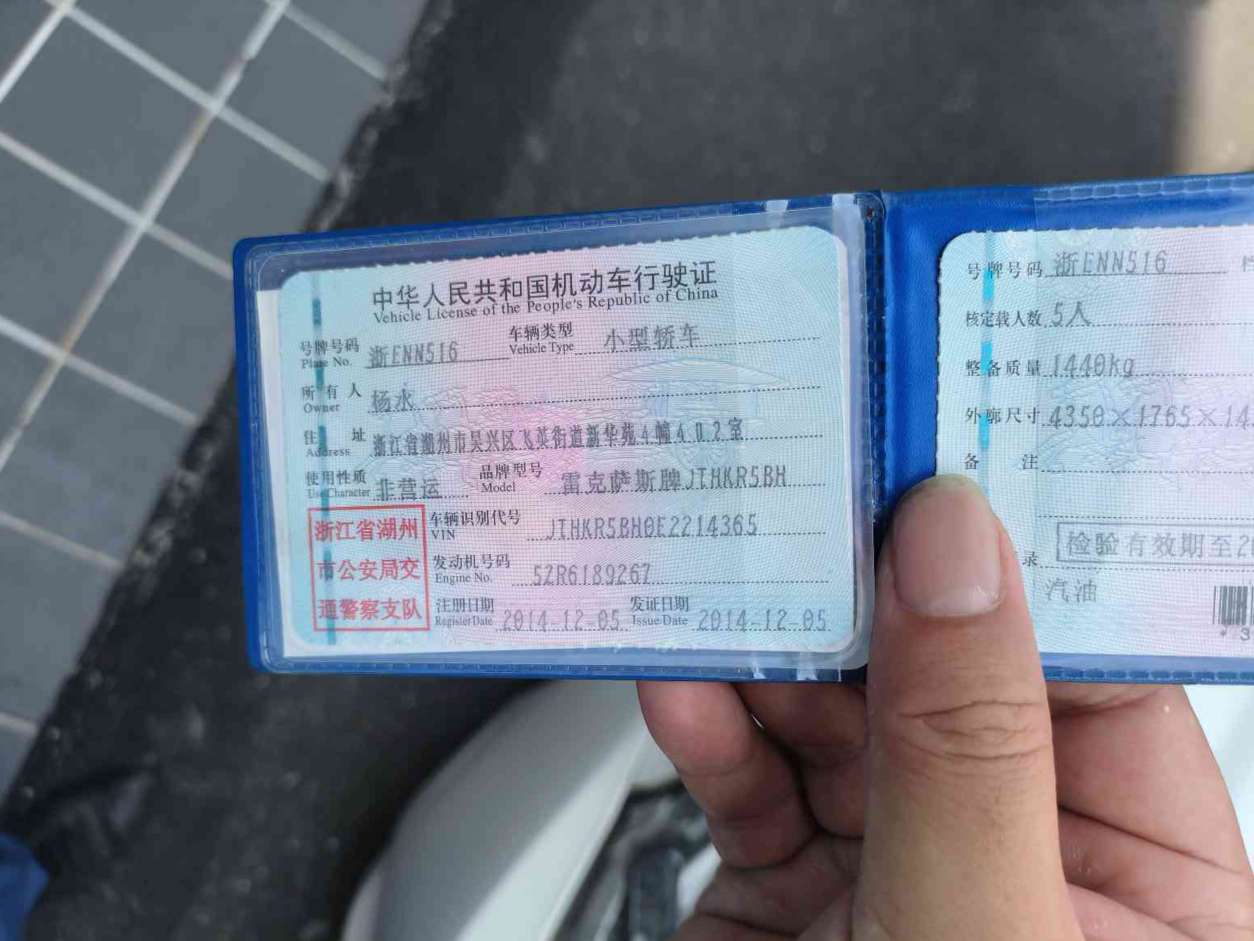 中华人民共和国机动车行驶证
Vehicle License of the People's Republic of China
号牌号码 浙ENN516 车辆类型 小型轿车
Plate No. Vehicle Type
所有人 杨永
Owner
住址 浙江省湖州市吴兴区飞英街道新华苑4幢402室
Address
使用性质 非营运 品牌型号 雷克萨斯牌JTHKR5BH
Use Character Model
浙江省湖州
市公安局交
通警察支队
车辆识别代号 JTHKR5BH0E2214365
VIN
发动机号码 5ZR6189267
Engine No.
注册日期 2014-12-05 发证日期 2014-12-05
Register Date Issue Date
号牌号码 浙ENN516
核定载人数 5人
整备质量 1440kg
外廓尺寸 4350×1765×14
备注
录 检验有效期至20
汽油